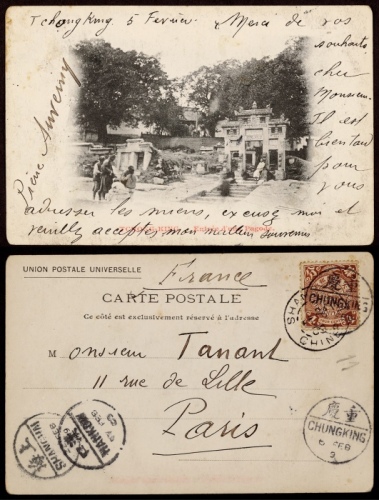 Tchongking 5 Février. Merci de vos
souhaits
cher
Monsieur.
Il est
bien tard
pour
vous
adresser les miens, excusez moi et
veuillez accepter mon meilleur souvenir
Pierre
UNION POSTALE UNIVERSELLE
France
CARTE POSTALE
Ce côté est exclusivement réservé à l'adresse
Monsieur Tanant
11 rue de Lille
Paris
重慶
CHUNGKING
SHANGHAI
CHINE
SHANGHAI
HANKOW
重慶
CHUNGKING
6 FEB
3